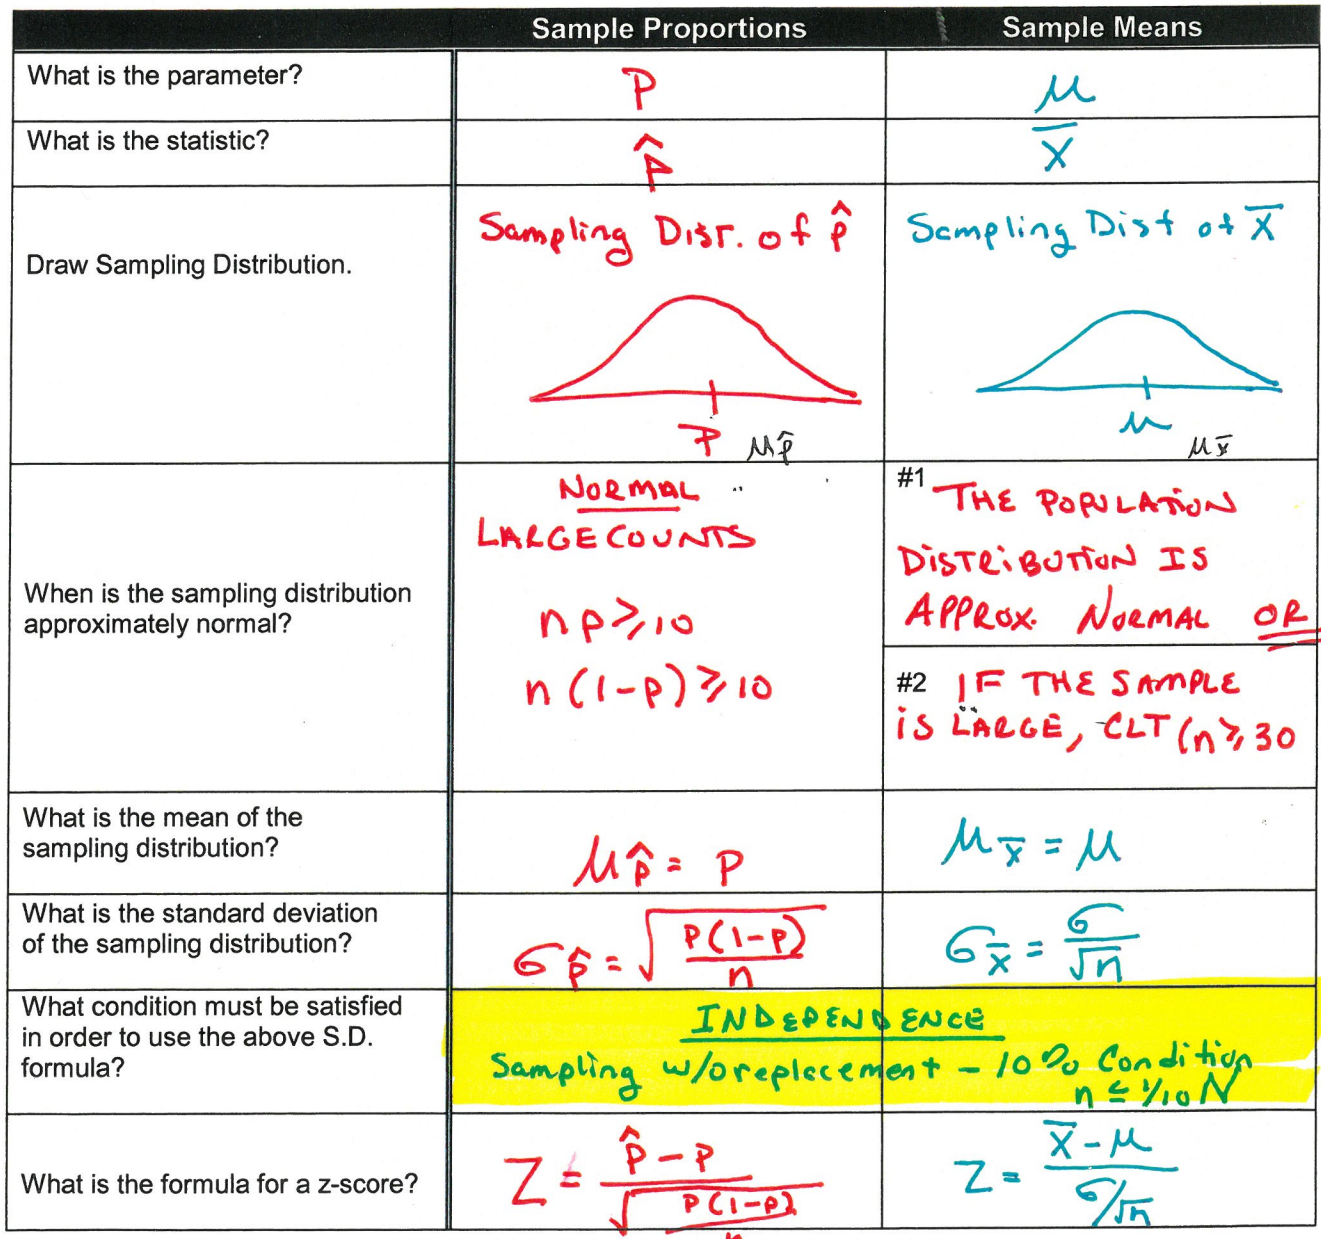 Sample Proportions Sample Means
What is the parameter? P μ
What is the statistic? p̂ x̄
Draw Sampling Distribution.
Sampling Distr. of p̂
Sampling Dist of x̄
P μp̂
μ μx̄
When is the sampling distribution
approximately normal?
NORMAL
LARGE COUNTS
np ≥ 10
n(1-p) ≥ 10
#1 THE POPULATION
DISTRIBUTION IS
APPROX. NORMAL OR
#2 IF THE SAMPLE
IS LARGE, CLT (n ≥ 30
What is the mean of the
sampling distribution?
μp̂ = p
μx̄ = μ
What is the standard deviation
of the sampling distribution?
σp̂ = √(p(1-p)/n)
σx̄ = σ/√n
What condition must be satisfied
in order to use the above S.D.
formula?
INDEPENDENCE
Sampling w/o replacement - 10% Condition
n ≤ 1/10 N
What is the formula for a z-score?
Z = (p̂ - p)/√(p(1-p)/n)
Z = (x̄ - μ)/(σ/√n)